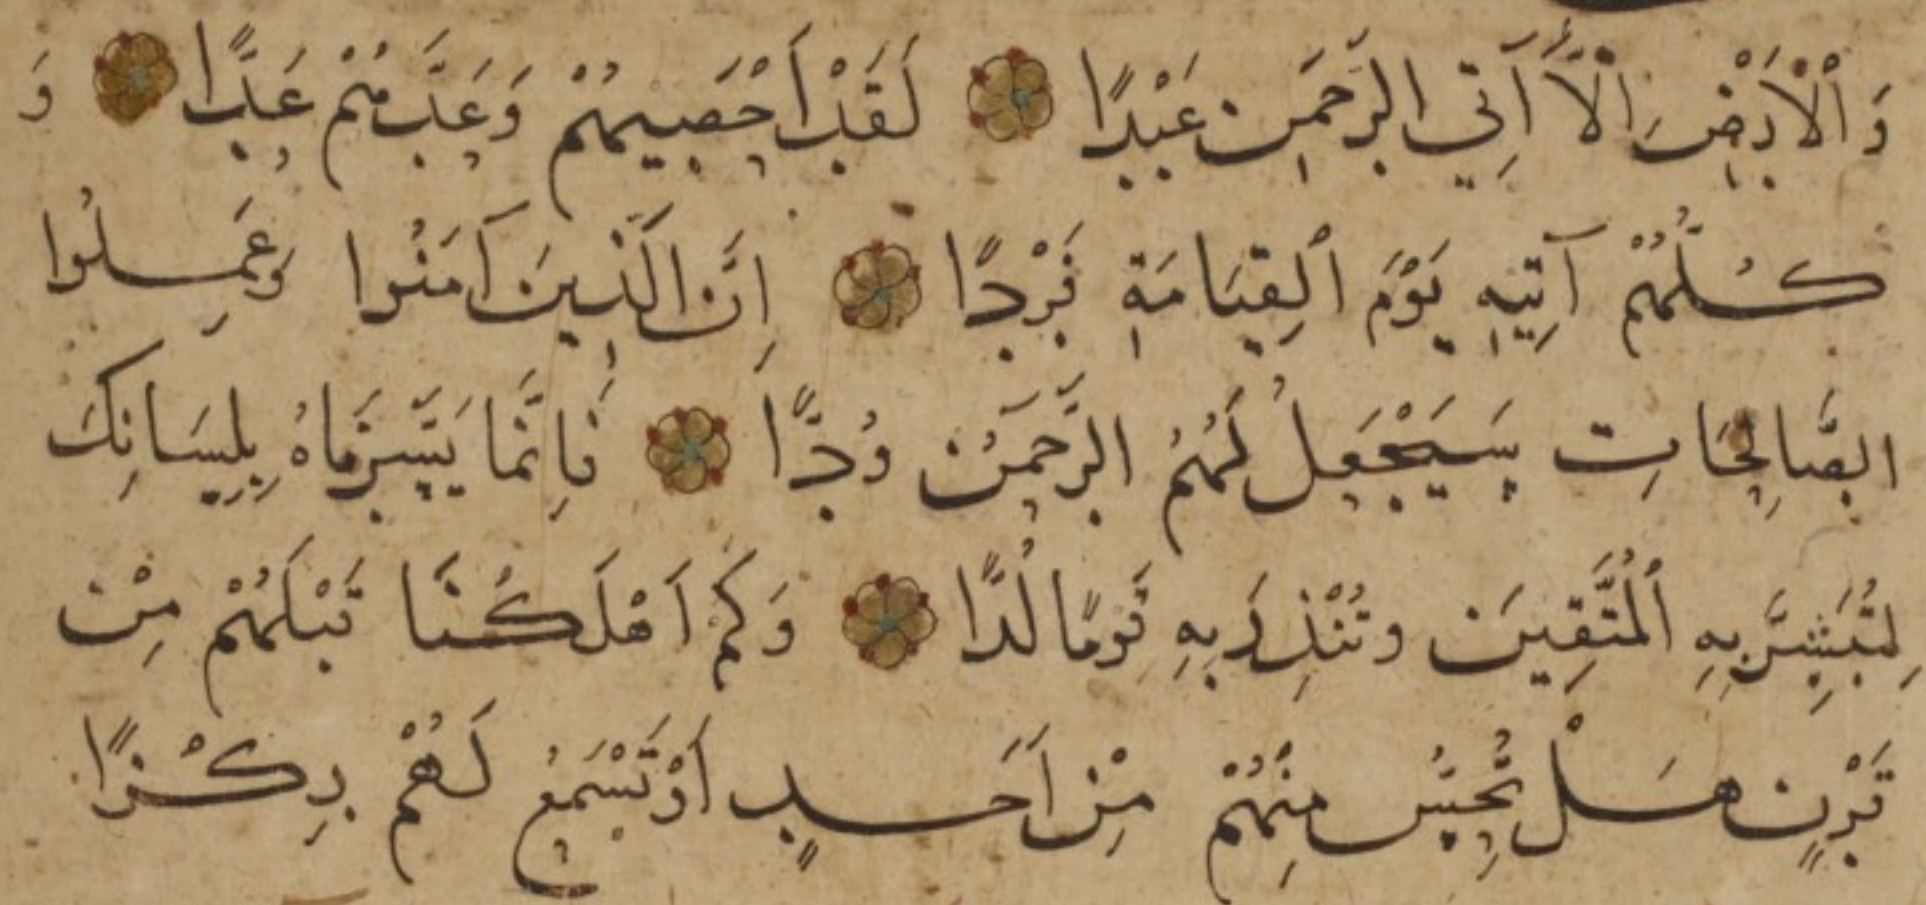 وَٱلْاَرْضِ اِلَّٓا اٰتِي الرَّحْمٰنِ عَبْدًا لَقَدْ اَحْصٰيهُمْ وَعَدَّهُمْ عَدًّا وَ
كُلُّهُمْ اٰتِيهِ يَوْمَ ٱلْقِيَامَةِ فَرْدًا اِنَّ الَّذِينَ اٰمَنُوا وَعَمِلُوا
الصَّالِحَاتِ سَيَجْعَلُ لَهُمُ الرَّحْمٰنُ وُدًّا فَاِنَّمَا يَسَّرْنَاهُ بِلِسَانِكَ
لِتُبَشِّرَ بِهِ ٱلْمُتَّقِينَ وتُنْذِرَ بِهِ قَوْمًا لُدًّا وَكَمْ اَهْلَكْنَا قَبْلَهُمْ مِنْ
قَرْنٍ هَلْ تُحِسُّ مِنْهُمْ مِنْ اَحَدٍ اَوْ تَسْمَعُ لَهُمْ رِكْزًا